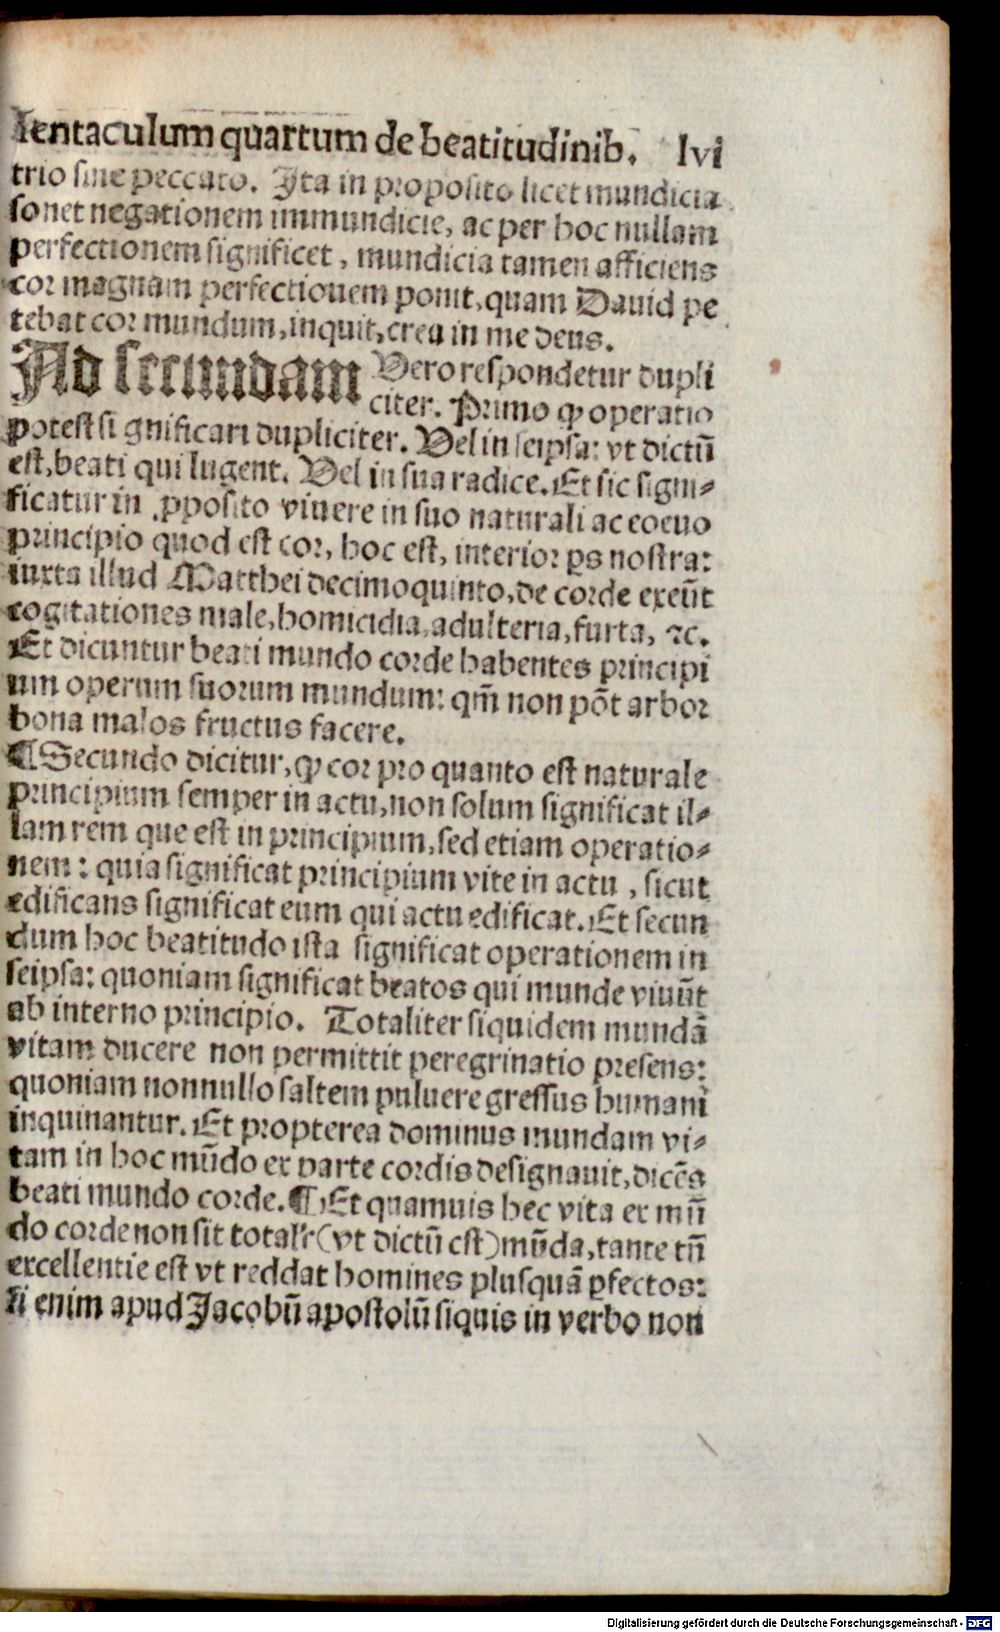 Ientaculum quartum de beatitudinib. lvi
trio sine peccato. Ita in proposito licet mundicia
sonet negationem immundicie, ac per hoc nullam
perfectionem significet, mundicia tamen afficiens
cor magnam perfectionem ponit, quam Dauid pe
tebat cor mundum, inquit, crea in me deus.
Ad secundam Vero respondetur dupli
citer. Primo ꝙ operatio
potest si gnificari dupliciter. Vel in seipsa: vt dictū
est, beati qui lugent. Vel in sua radice. Et sic signi⸗
ficatur in ꝓposito viuere in suo naturali ac coeuo
principio quod est cor, hoc est, interior ꝑs nostra:
iuxta illud Matthei decimoquinto, de corde exeūt
cogitationes male, homicidia, adulteria, furta, ⁊c.
Et dicuntur beati mundo corde habentes principi
um operum suorum mundum: qm̄ non pōt arbor
bona malos fructus facere.
¶ Secundo dicitur, ꝙ cor pro quanto est naturale
principium semper in actu, non solum significat il⸗
lam rem que est in principium, sed etiam operatio⸗
nem: quia significat principium vite in actu, sicut
edificans significat eum qui actu edificat. Et secun
dum hoc beatitudo ista significat operationem in
seipsa: quoniam significat beatos qui munde viuūt
ab interno principio. Totaliter siquidem mundā
vitam ducere non permittit peregrinatio presens:
quoniam nonnullo saltem puluere gressus humani
inquinantur. Et propterea dominus mundam vi⸗
tam in hoc mūdo ex parte cordis designauit, dicēs
beati mundo corde. ¶ Et quamuis hec vita ex mū
do corde non sit totalr̄ (vt dictū est) mūda, tante tn̄
excellentie est vt reddat homines plusquā ꝑfectos:
si enim apud Jacobū apostolū siquis in verbo non
Digitalisierung gefördert durch die Deutsche Forschungsgemeinschaft - DFG